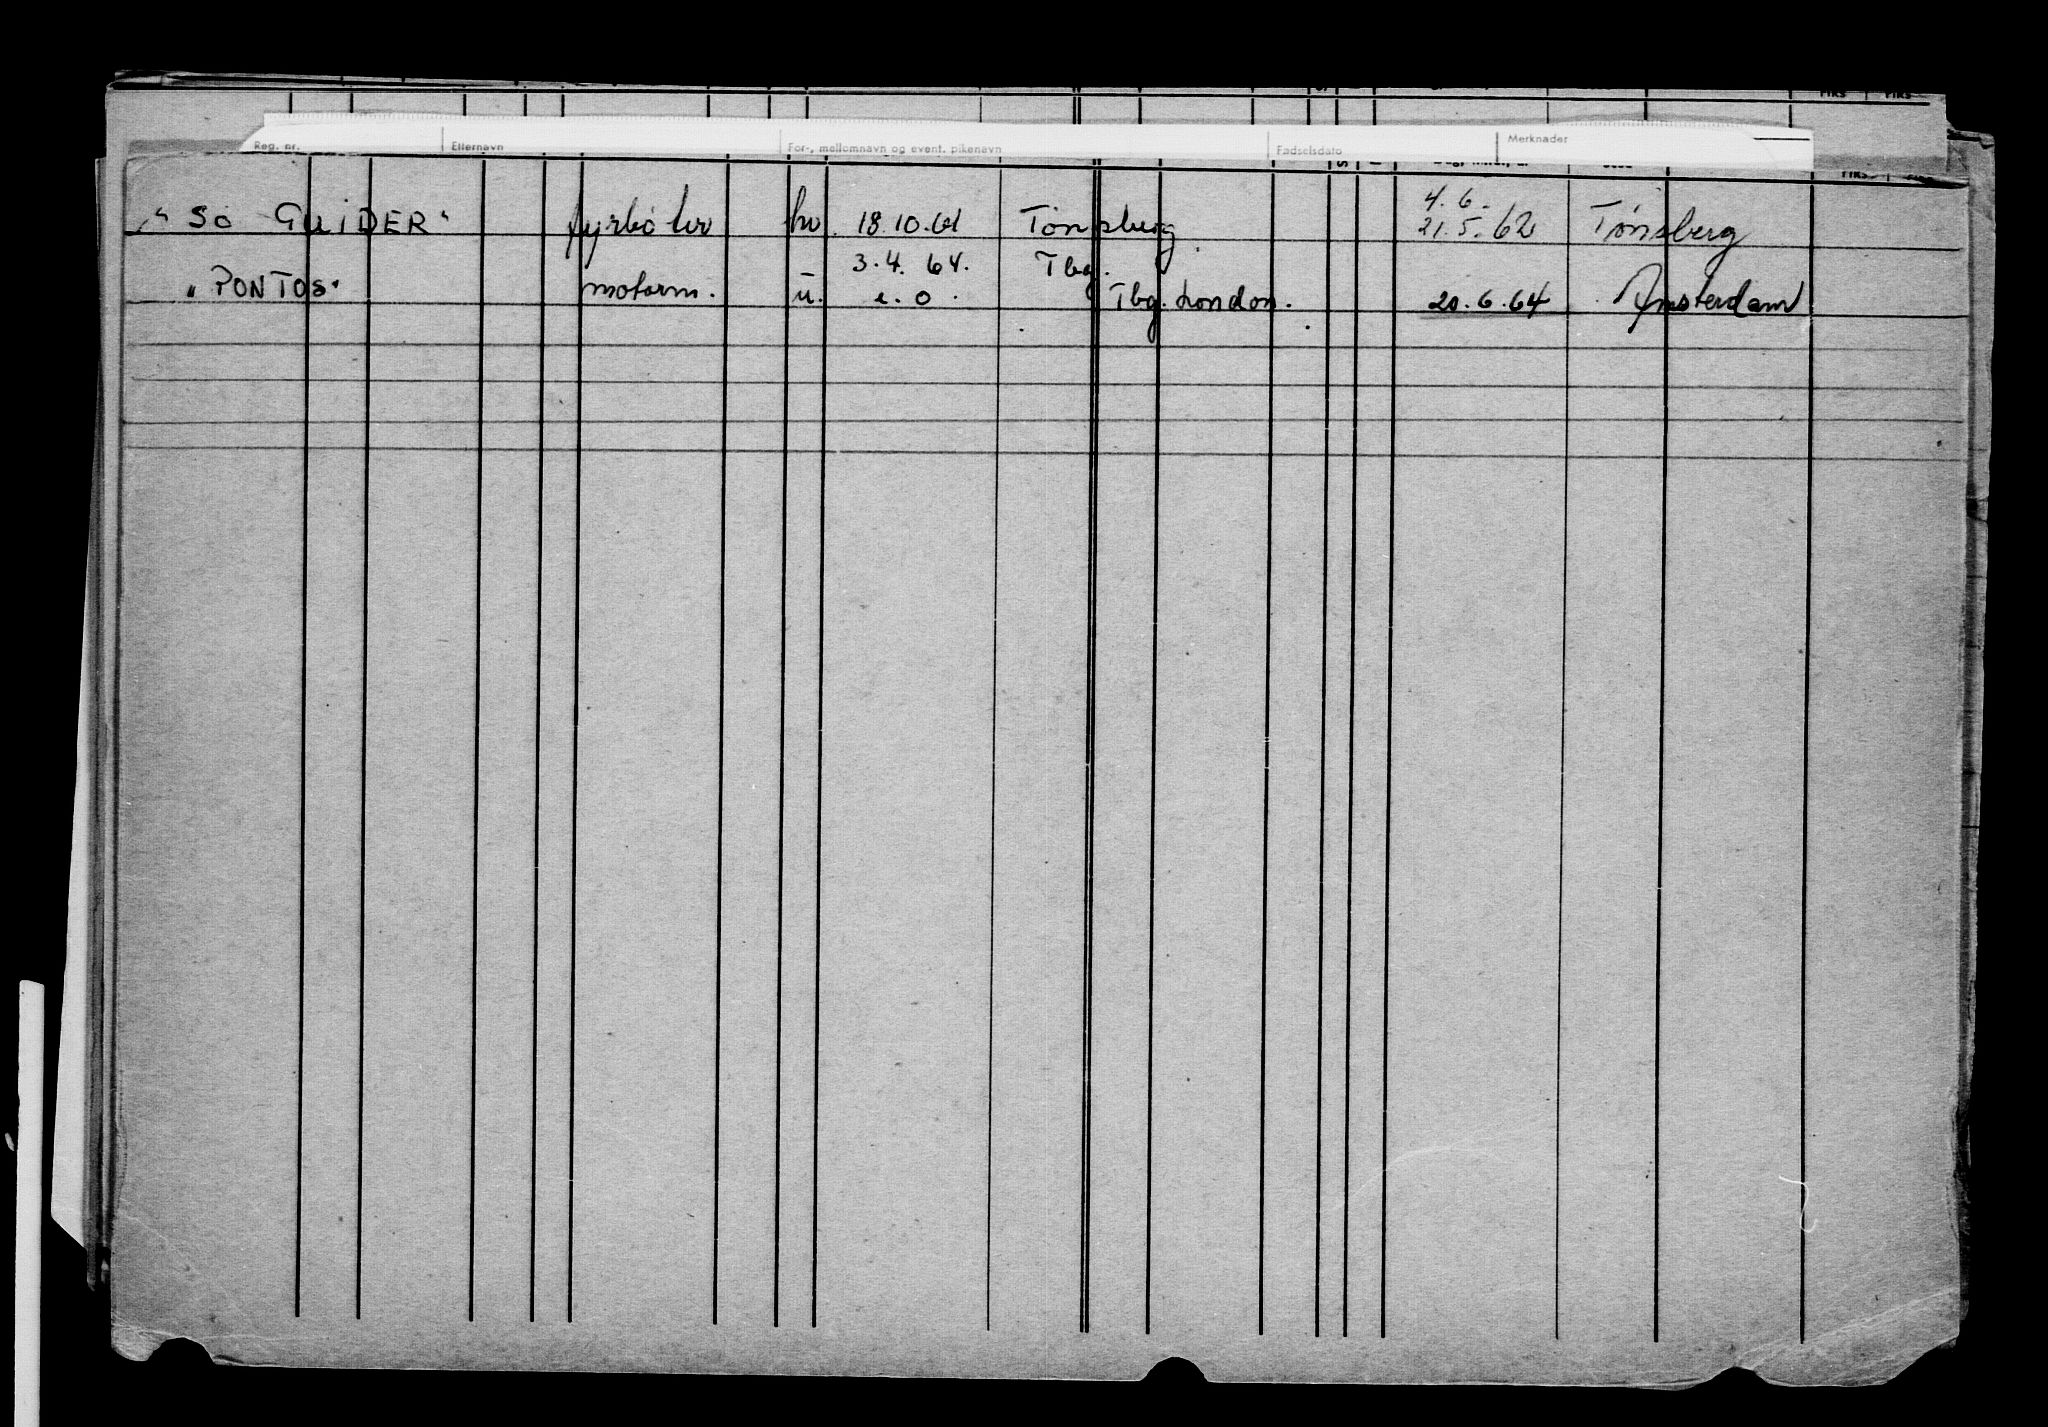 Reg. nr. Etternavn For-, mellomnavn og event. pikenavn Fødselsdato Merknader
4. 6.
"SO GUIDER" fyrbøter hv 18.10.61 Tønsberg 21.5.62 Tønsberg
3.4. 64. Tbg.
"PONTOS" motorm. u. e. o. Tbg. London. 20.6.64 Amsterdam